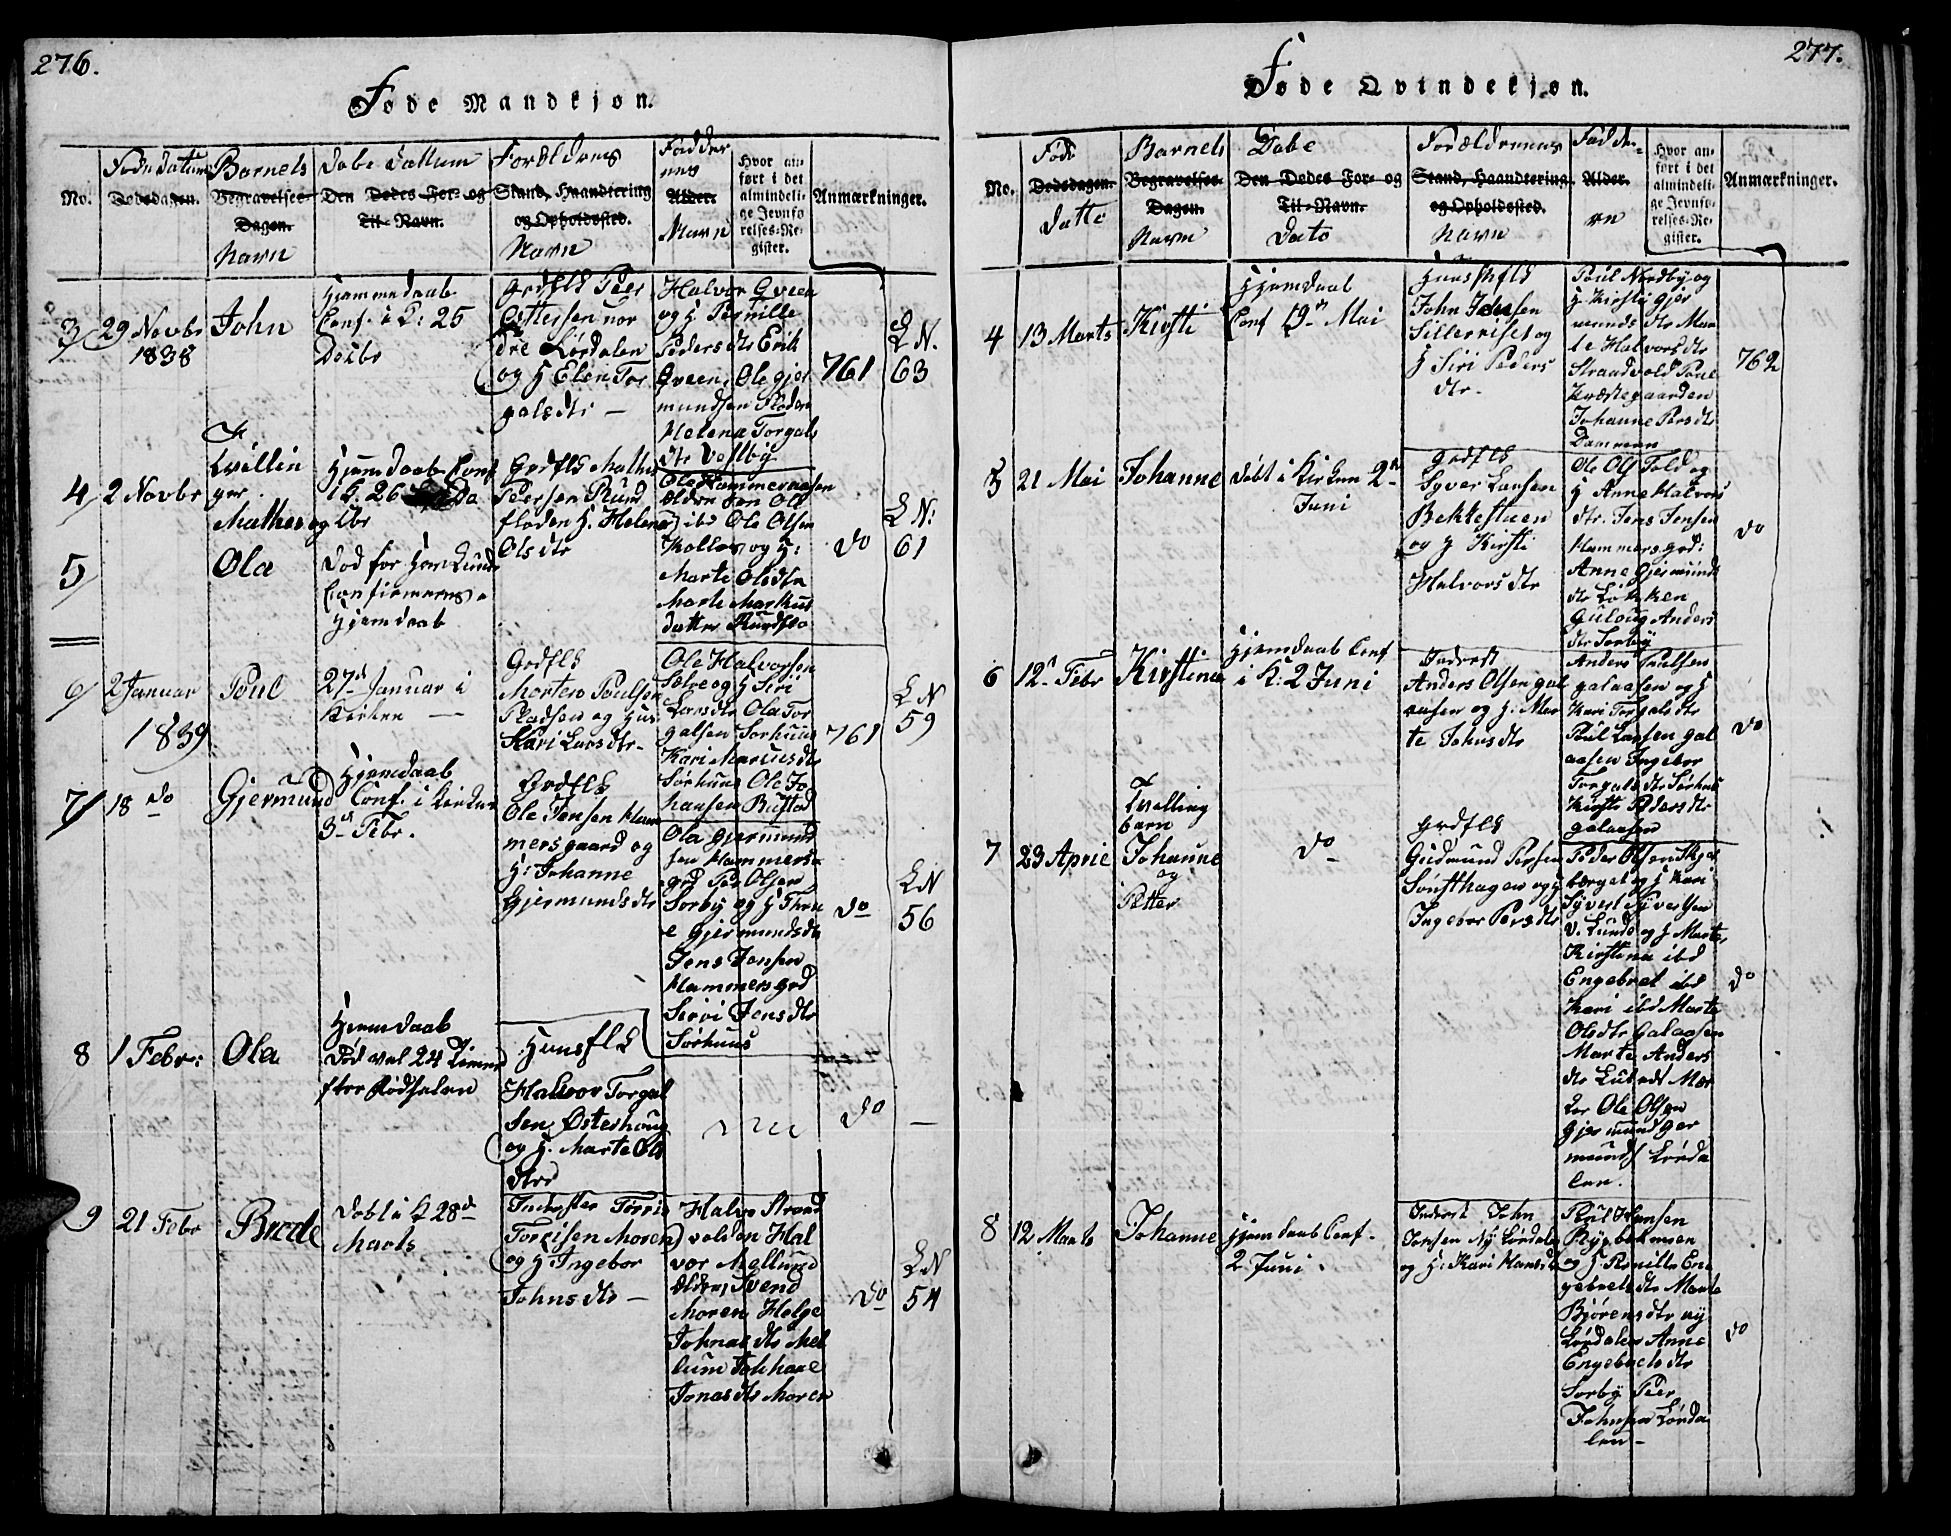 276.
Føde Mandkjøn.
No.
Fødedatum
Dødsdagen.
Barnets
Begravelses-
Dagen.
Navn
Dobe Dattum
Den Dødes For- og
Til-Navn.
Forældrenes
Stand, Haandtering
og Opholdssted.
Navn
Fadder
nes
Alder.
Navn
Hvor an-
ført i det
almindeli-
ge Jevnfø-
relses-Re-
gister.
Anmærkninger.
3
29 Novbr
1838
John
Hjemmedaab
Conf. i K: 26
Decbr
Grdfls Peer
Pettersen nor
dre Lørdalen
og H Elen Tor
galsdtr —
Halvor Qveen
og H Pernille
Pedersdtr Erik
Qveen, Ole Gjer
mundsen Floden
Helena Torgals
dtr Vestby
761
L N.
63
4
2 Novbr
Tvillin
ger
Mathes og
Hjemdaab Conf
i K. 26 De
cbr
Grdfls Mathes
Peersen Rund
floden H. Helene
Olsdtr
Ole Hammeraasen
Halvor og H:
Marte Olsdtr
Marte Markus
datter Rundflo
do
L N:
61
5
Ola
Død før han kunde
Confirmeres.
Hjemdaab
6
2 Januar
1839
Poul
27d Januar i
Kirken —
Grdfls
Morten Poulsen
Pladsen og Hus
Kari Larsdtr.
Ole Halvorsen
Sætre og H Siri
Larsdtr Ola Tor
galsen Sorhuus
Kari Mariusdtr
Sørhuus Ole Jo
hansen Bustad
761
L N
59
7
18 do
Gjermund
Hjemdaab
Conf. i Kirken
3d Febr.
Grdfls
Ole Jensen Ham
mersgaard og
H: Johanne
Gjermundsdtr
Ola Gjermund
sen Hammers-
grd Per Olsen
Sorby og H Thrin
e Gjermundsdtr
Jens Jensen
Hammersgrd
Sirvi Jensdtr
Sørhuus
do
L N
56
8
1 Febr:
Ola
Hjemdaab
Død vel 24 Timer
efter Fødselen
Huusfls
Halvor Torgal
sen Østerhoug
og H. Marte Ols
dtr
do
—
9
21 Febr
Brede
Døbt i K 28d
Marts
Inderster Torris
Torrisen Moren
og H Ingebor
Johnsdtr —
Halvo Strand
volden Hal
vor Mellum
Ældre, Svend
Moren Helge
Johnas dtr Mel
lum Johhane
Jonasdtr Moren
do
L N
54
277.
Føde Qvindekjøn.
No.
Føde
Dødsdagen.
Datto
Barnets
Begravelses-
Dagen.
Navn
Dabe
Den Dødes For- og
Til-Navn.
Dato
Forældrenes
Stand, Haandtering
og Opholdssted.
Navn
Fadder-
Alder.
ne
Hvor an-
ført i det
almindeli-
ge Jevnfø-
relses-Re-
gister.
Anmærkninger.
4
13 Marts
Kirsti
Hjemdaab
Conf 19d Mai
Huusfls
John Jensen
Sillerriset og
H Siri Peders
dtr.
Poul Nordby og
H Kirsti Gjer
munds dtr Mar
te Halvorsdtr
Straadvold Poul
Præstegaarden
Johanne Persdtr
Dammen
762
5
21 Mai
Johanne
Døbt i Kirken 2d
Juni
Grdfls
Syver Larsen
Bekkestuen
og H Kirsti
Halvorsdtr
Ole Ols Told og
H Anne Halvors
dtr. Jens Jensen
Hammersgrd:
Anne Gjermunds
dtr Løkken
Guloug Anders
dtr Sorby
do
6
12d Febr
Kirstine
Hjemdaab Conf
i K: 2 Juni
Inderst
Anders Olsen gal
aasen og H: Mar
te Johnsdtr
Anders Paulsen
galaasen og H
Kari Torgalsdtr
Poul Larsen gal
aasen Ingebor
Torgalsdtr Sørhus
Kirsti Pedersdtr
galaasen
do
7
23 April
Tvilling
børn
Johanne
og
Petter
do
Grdfls
Gudmund Persen
Sønsthagen og H
Ingebor Persdtr
Peder Olsen Skjæ
berget og H Kari
Syvert Syversen
v. Lund og H Marte,
Kirstina ibd
Engebret ibd
Kari ibd Marte
Olsdtr Galaasen
Marte Anders
dtr Lutnes
Ole Olsen
Gjermund Ger
munds Lørda
len.
do
8
12 Marts
Johanne
Hjemdaab Conf.
2 Juni.
Inderst John
Jonsen Ny Lørdalen
og H: Kari Hansdtr
Poul Hansen
Rygbakmoen
og H. Pernille En
gebretsdtr Marte
Bjørensdtr ny
Lørdalen Anne
Engebretsdtr
Sorby Peer
Johnsen Lørda
len —
do